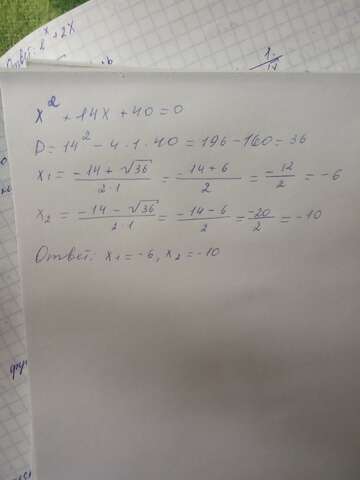 Ответ: 2ˣ + 2x
x² + 14x + 40 = 0
D = 14² - 4 · 1 · 40 = 196 - 160 = 36
x₁ = (-14 + √36)/(2 · 1) = (-14 + 6)/2 = -12/2 = -6
x₂ = (-14 - √36)/(2 · 1) = (-14 - 6)/2 = -20/2 = -10
Ответ: x₁ = -6, x₂ = -10